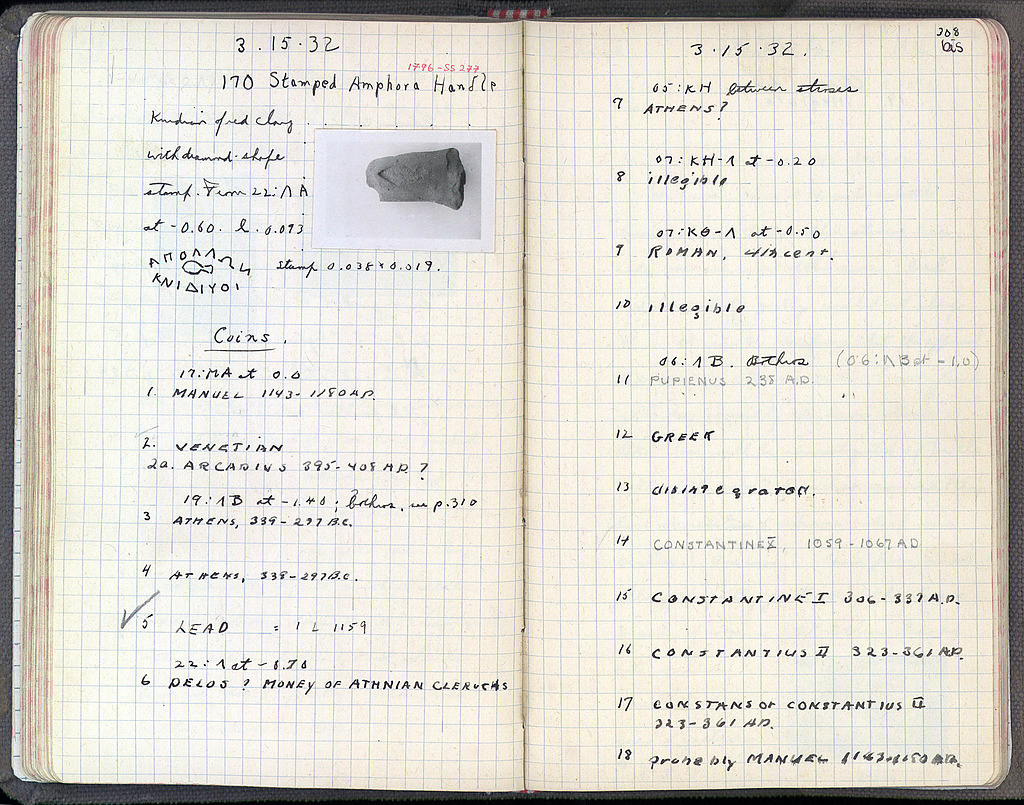 3.15.32
1796-SS 277
170 Stamped Amphora Handle
Knidian of red clay
with diamond-shape
stamp. From 22:ΛΑ
at -0.60. l. 0.093
ΑΠΟΛΛ
stamp 0.038 x 0.019.
ΚΝΙΔΙΥΟΙ
Coins.
17:ΜΑ at 0.0
1. MANUEL 1143-1180 A.D.
2. VENETIAN
2a. ARCADIUS 395-408 A.D.?
19:ΛΒ at -1.40; bothros, see p.310
3 ATHENS, 339-297 B.C.
4 ATHENS, 339-297 B.C.
5 LEAD = IL 1159
22:Λ at -0.70
6 DELOS? MONEY OF ATHNIAN CLERUCHS
308
bis
3.15.32.
05:ΚΗ between stoses
7 ATHENS?
07:ΚΗ-Λ at -0.20
8 illegible
07:ΚΘ-Λ at -0.50
9 ROMAN, 4th cent.
10 illegible
06:ΛΒ. Bothros (06:ΛΒ at -1.0)
11 PUPIENUS 238 A.D.
12 GREEK
13 disintegrated.
14 CONSTANTINE X, 1059-1067 AD
15 CONSTANTINE I 306-337 A.D.
16 CONSTANTIUS II 323-361 A.D.
17 CONSTANS OR CONSTANTIUS II
323-361 A.D.
18 probably MANUEL 1143-1180 A.D.